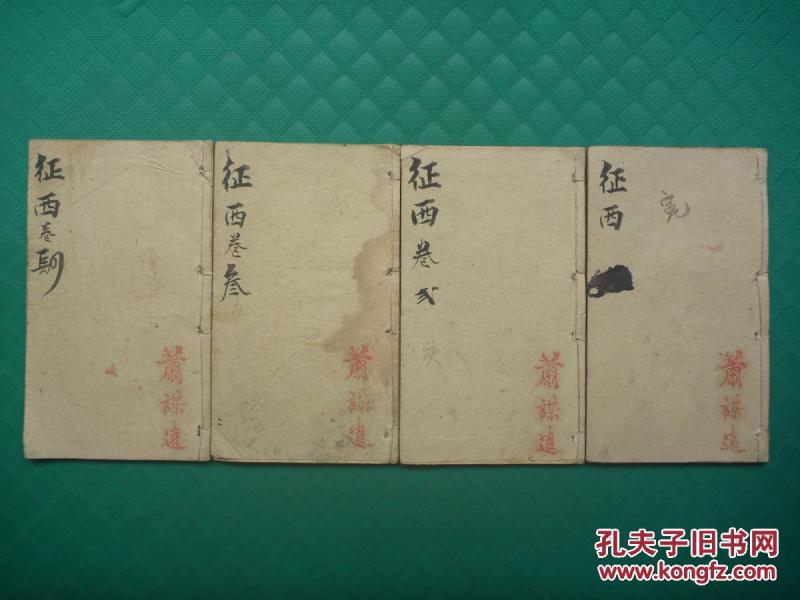 征西卷
蕭謀遠
征西卷叁
蕭謀遠
征西卷弍
蕭謀遠
征西
完
蕭謀遠
孔夫子旧书网
www.kongfz.com